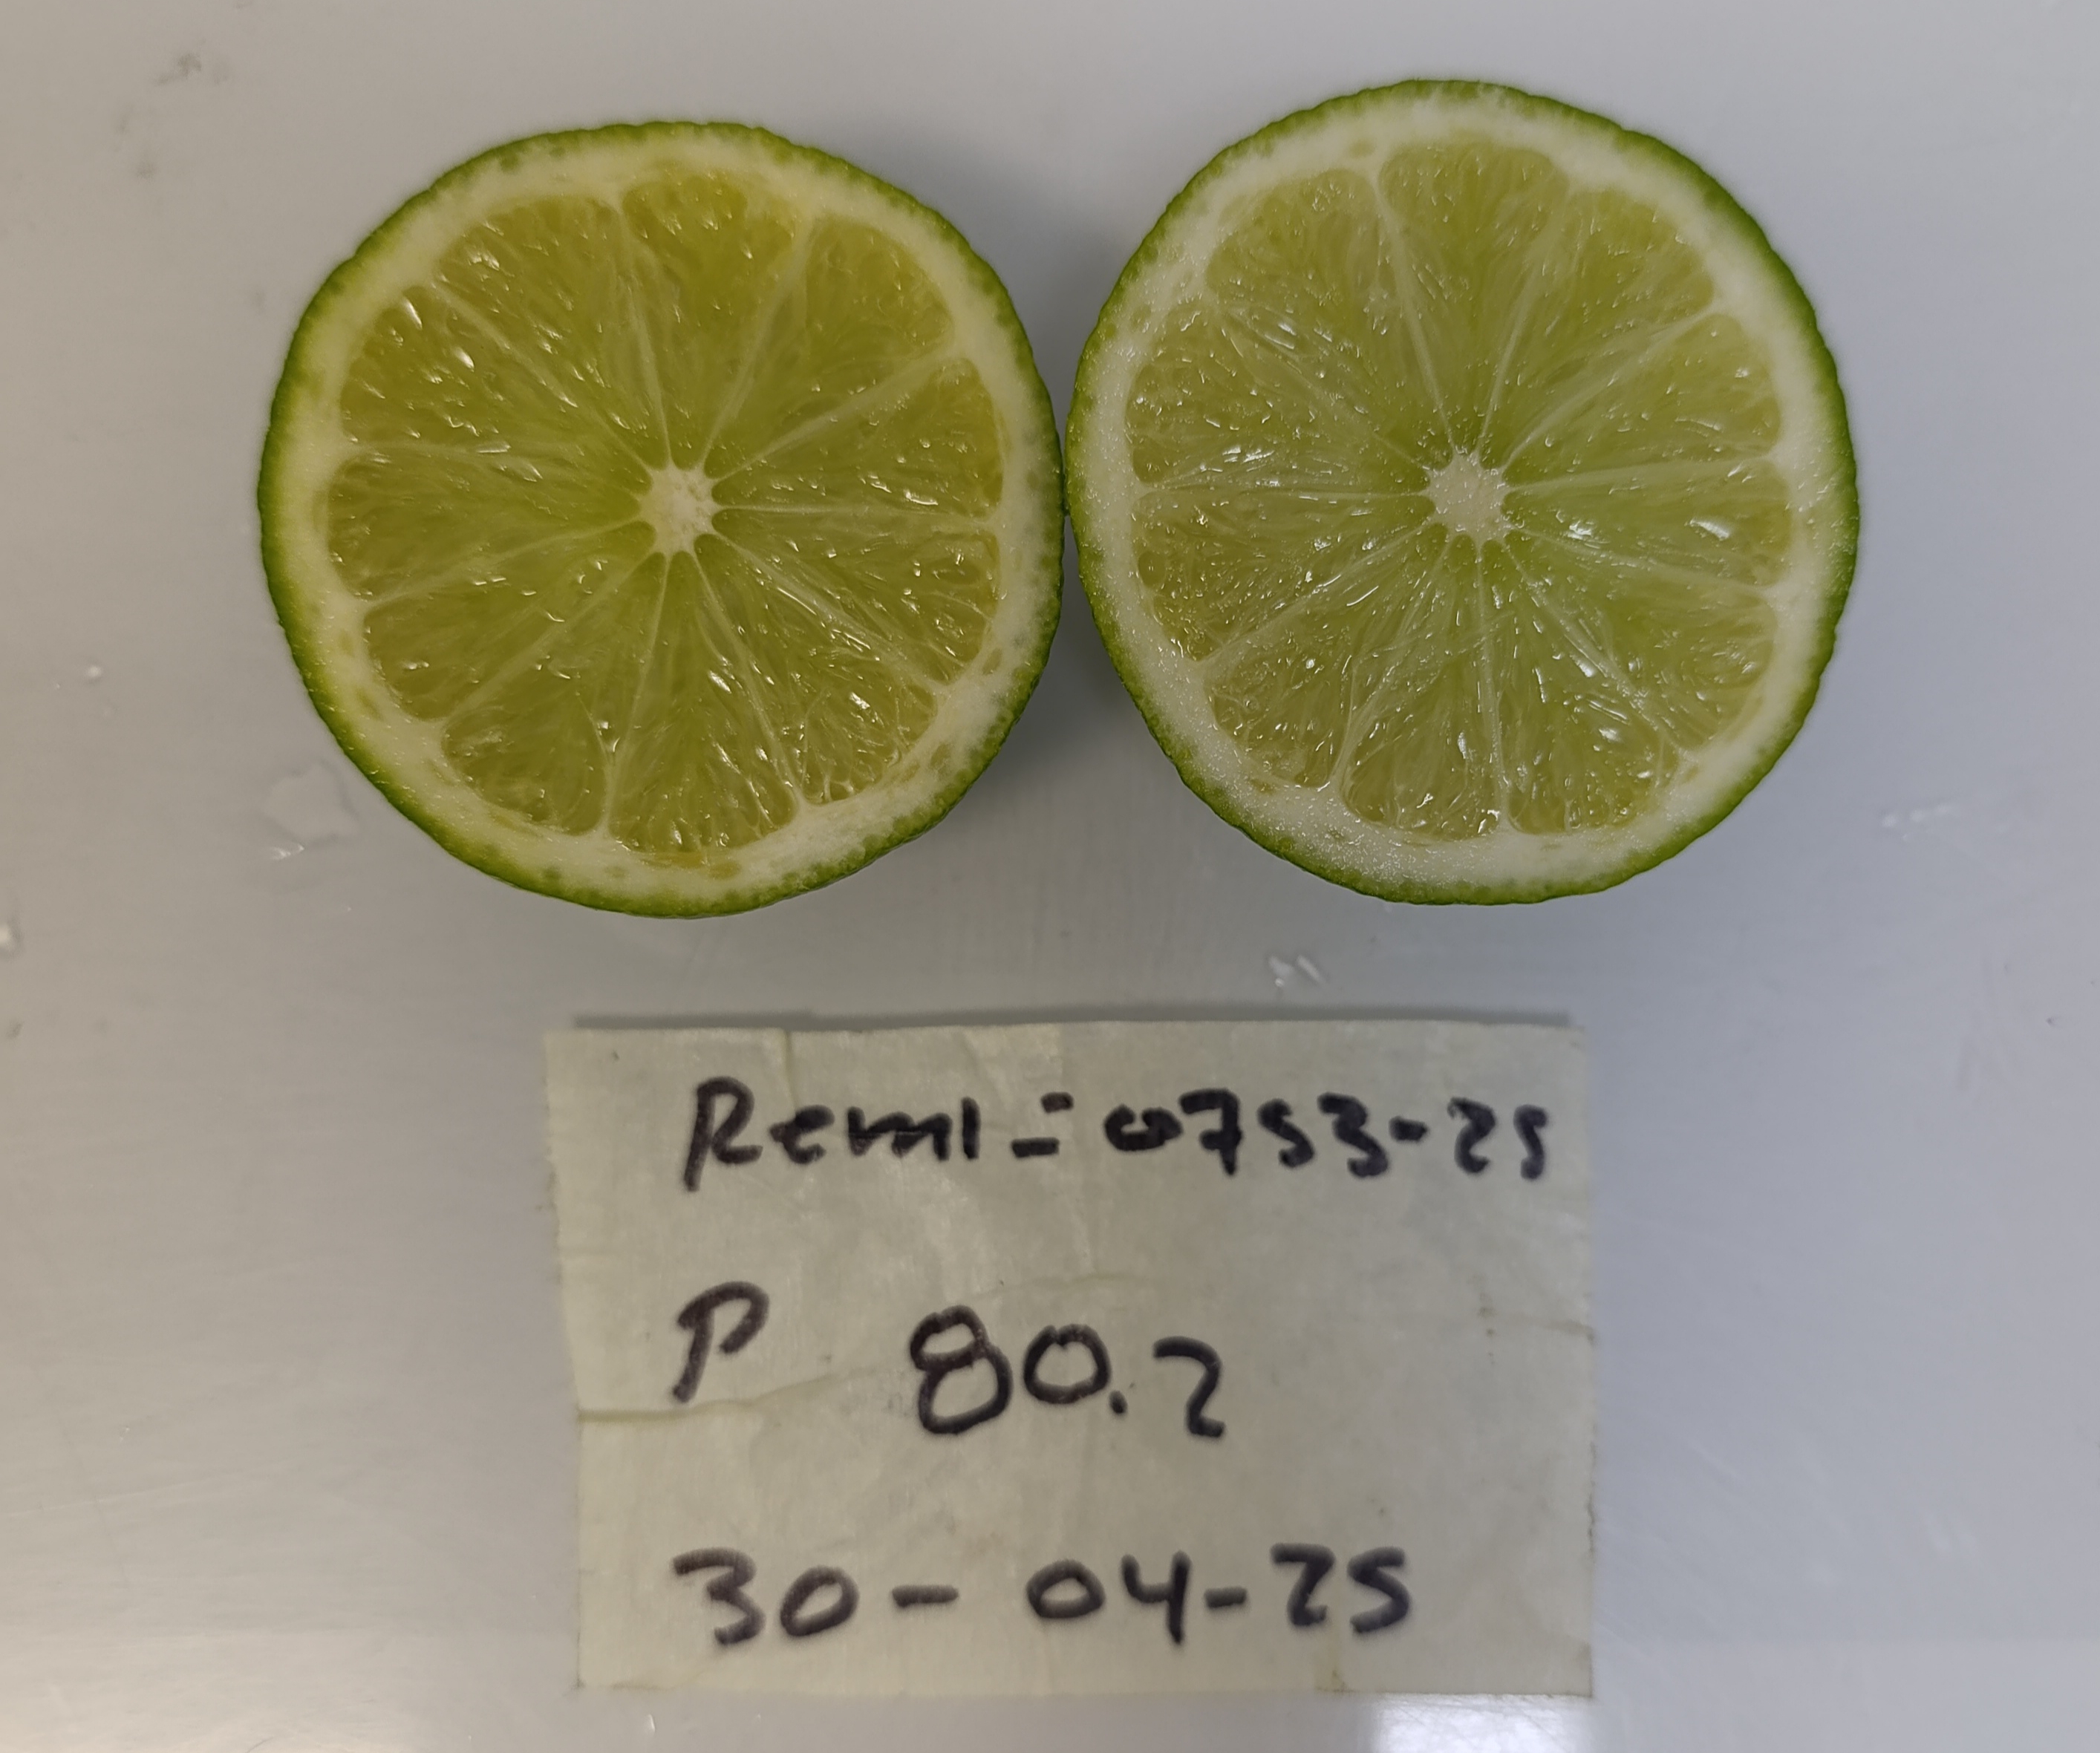 Reml = 0753-25
P 80.2
30-04-25